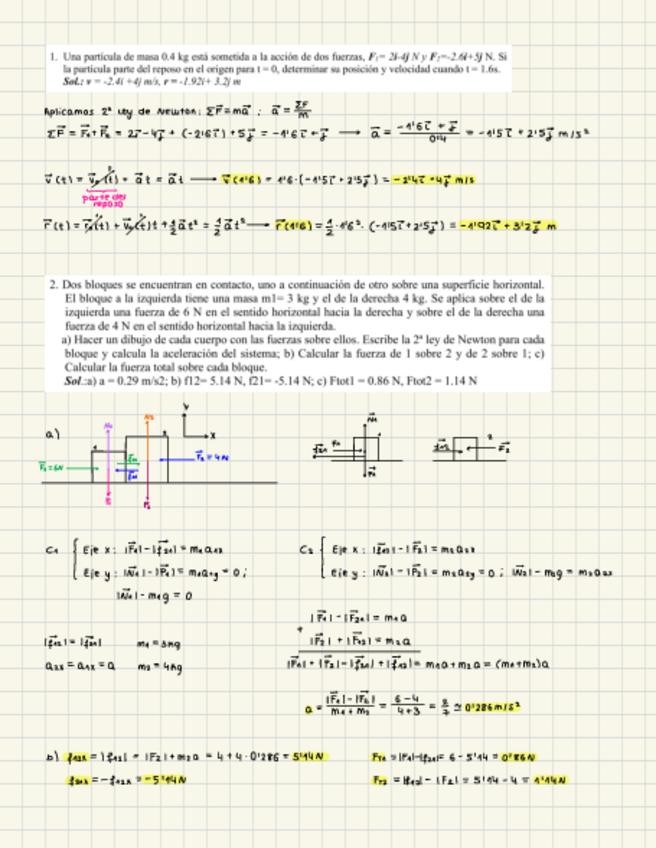 1. Una partícula de masa 0.4 kg está sometida a la acción de dos fuerzas, F₁= 2i-4j N y F₂=-2.6i+5j N. Si
la partícula parte del reposo en el origen para t = 0, determinar su posición y velocidad cuando t = 1.6s.
Sol.: v = -2.4i +4j m/s, r = -1.92i+ 3.2j m
Aplicamos 2ª ley de Newton: ΣF = ma ; a = ΣF/m
ΣF = F₁ + F₂ = 2i - 4j + (-2'6i) + 5j = -1'6i + j → a = (-1'6i + j)/0'4 = -1'5i + 2'5j m/s²
v(t) = v₀(t) + at = at → v(1'6) = 1'6·(-1'5i + 2'5j) = -2'4i + 4j m/s
parte del
reposo
r(t) = r₀(t) + v₀(t)t + ½at² = ½at² → r(1'6) = ½·1'6²·(-1'5i + 2'5j) = -1'92i + 3'2j m
2. Dos bloques se encuentran en contacto, uno a continuación de otro sobre una superficie horizontal.
El bloque a la izquierda tiene una masa m1= 3 kg y el de la derecha 4 kg. Se aplica sobre el de la
izquierda una fuerza de 6 N en el sentido horizontal hacia la derecha y sobre el de la derecha una
fuerza de 4 N en el sentido horizontal hacia la izquierda.
a) Hacer un dibujo de cada cuerpo con las fuerzas sobre ellos. Escribe la 2ª ley de Newton para cada
bloque y calcula la aceleración del sistema; b) Calcular la fuerza de 1 sobre 2 y de 2 sobre 1; c)
Calcular la fuerza total sobre cada bloque.
Sol.:a) a = 0.29 m/s2; b) f12= 5.14 N, f21= -5.14 N; c) Ftot1 = 0.86 N, Ftot2 = 1.14 N
a)
Y
X
F₁=6N
F₂=4N
C₁ Eje x: |F₁|-|f₂₁| = m₁a₁ₓ
Eje y: |N₁|-|P₁| = m₁a₁y = 0 ;
|N₁|-m₁g = 0
C₂ Eje x: |f₁₂|-|F₂| = m₂a₂ₓ
Eje y: |N₂|-|P₂| = m₂a₂y = 0 ; |N₂|-m₂g = m₂a₂ₓ
|f₁₂| = |f₂₁| m₁ = 3kg
a₂ₓ = a₁ₓ = a m₂ = 4kg
|F₁|-|F₂₁| = m₁a
+ |F₂| + |F₁₂| = m₂a
|F₁| + |F₂|-|f₂₁| + |f₁₂| = m₁a + m₂a = (m₁+m₂)a
a = (|F₁|-|F₂|)/(m₁+m₂) = (6-4)/(4+3) = 2/7 ≃ 0'286 m/s²
b) f₁₂ₓ = |f₁₂| = |F₂| + m₂a = 4 + 4·0'286 = 5'14N
f₂₁ₓ = -f₁₂ₓ = -5'14N
F_T1 = |F₁|-|f₂₁| = 6 - 5'14 = 0'86N
F_T2 = |f₁₂| - |F₂| = 5'14 - 4 = 1'14N